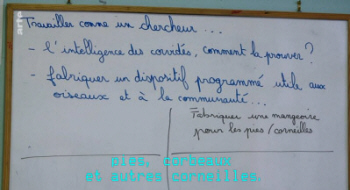 arte
Travailler comme un chercheur...
- l'intelligence des corvidés, comment la prouver ?
- fabriquer un dispositif programmé utile aux
oiseaux et à la communauté...
Fabriquer une mangeoire
pour les pies/corneilles
pies, corbeaux
et autres corneilles.